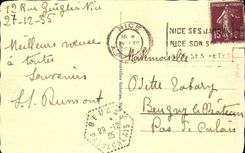 12 Rue Guiglia Nice
27-12-35
Meilleurs voeux
à toutes
Souvenirs
Dumont
NICE
NICE SES JA
NICE SON S
SES FETES
Mademoiselle
Odette
Beugny le Château
Pas de Calais
BEUGNY
29-12
35
PAS DE CALAIS